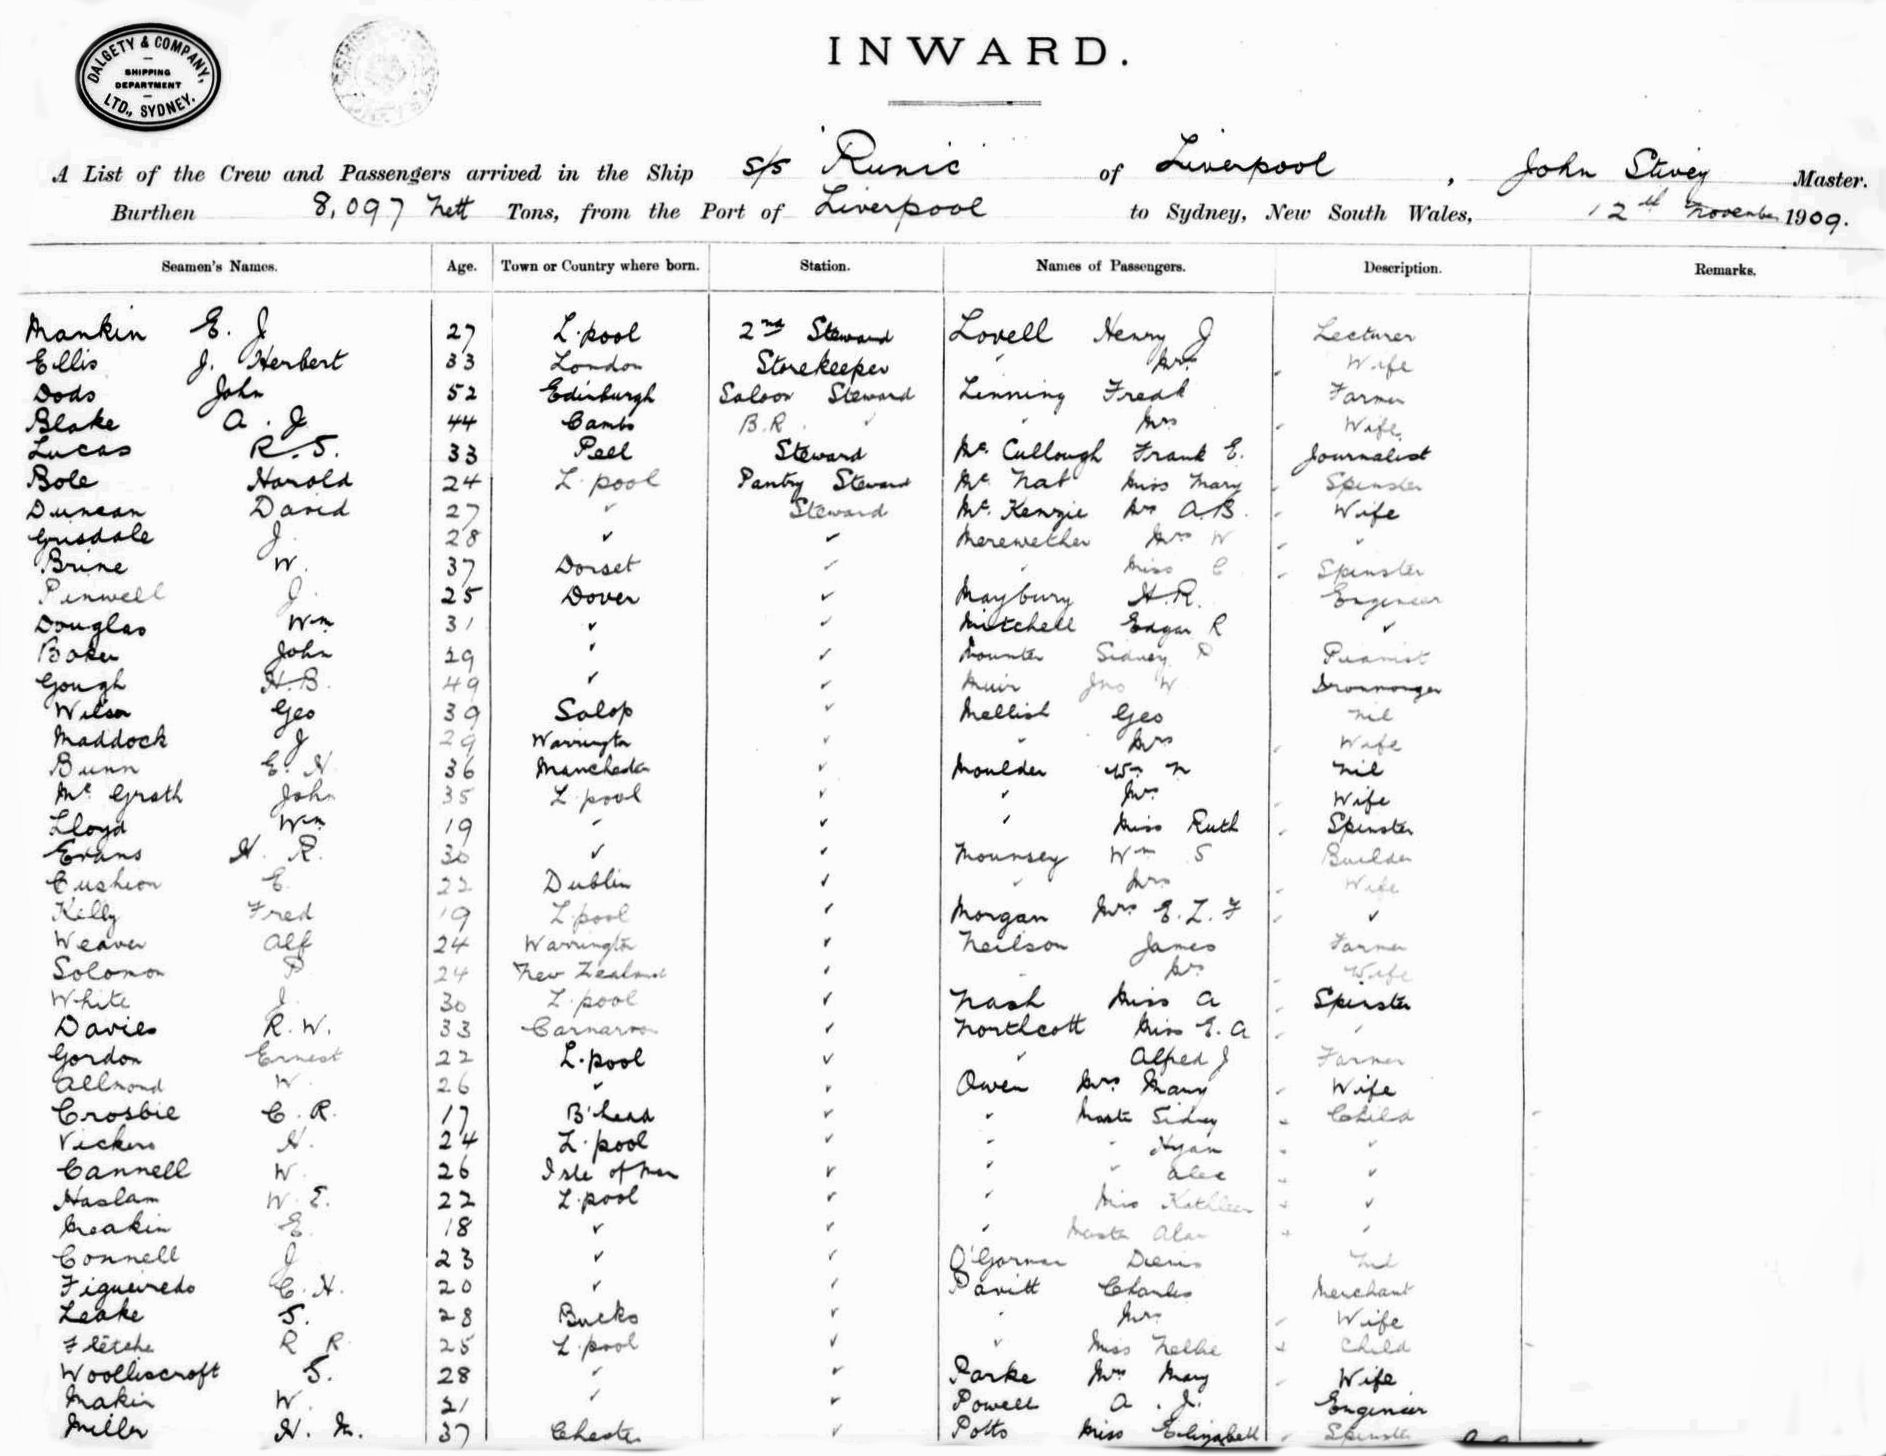 DALGETY & COMPANY, LTD., SYDNEY.
SHIPPING
DEPARTMENT
INWARD.
A List of the Crew and Passengers arrived in the Ship s/s 'Runic' of Liverpool, John Stivey Master.
Burthen 8,097 Nett Tons, from the Port of Liverpool to Sydney, New South Wales, 12th November 1909.
Seamen's Names. Age. Town or Country where born. Station. Names of Passengers. Description. Remarks.
Mankin E. J 27 L'pool 2nd Steward Lovell Henry J Lecturer
Ellis J. Herbert 33 London Storekeeper " Mrs Wife
Dods John 52 Edinburgh Saloon Steward Linning Fredk Farmer
Blake A. J 44 Cambs B.R. " " Mrs Wife
Lucas R. S. 33 Peel Steward Mc Cullough Frank E. Journalist
Bole Harold 24 L'pool Pantry Steward Mc Nab Miss Mary Spinster
Duncan David 27 " Steward Mc Kenzie Mrs A.B. Wife
Grisdale J. 28 " " Merewether Mrs W "
Brine W. 37 Dorset " " Miss C Spinster
Pinwell J. 25 Dover " Maybury H.R. Engineer
Douglas Wm 31 " " Mitchell Edgar R "
Baker John 29 " " Mounter Sidney P Pianist
Gough H.B. 49 " " Muir Jno W Ironmonger
Wilson Geo 39 Salop " Mellish Geo Nil
Maddock J 29 Warrington " " Mrs Wife
Bunn E. H. 36 Manchester " Moulder Wm N Nil
Mc Grath John 35 L'pool " " Mrs Wife
Lloyd Wm 19 " " " Miss Ruth Spinster
Evans H. R. 30 " " Mounsey Wm S Builder
Cushion E. 22 Dublin " " Mrs Wife
Kelly Fred 19 L'pool " Morgan Mrs E. L. F "
Weaver Alf 24 Warrington " Neilson James Farmer
Solomon P 24 New Zealand " " Mrs Wife
White J. 30 L'pool " Nash Miss A Spinster
Davies R. W. 33 Carnarvon " Northcott Miss E. A "
Gordon Ernest 22 L'pool " " Alfred J Farmer
Allmond W. 26 " " Owen Mrs Mary Wife
Crosbie C. R. 17 B'head " " Master Sidney Child
Vickers H. 24 L'pool " " " "
Cannell W. 26 Isle of Man " " " Alec "
Haslam W. E. 22 L'pool " " Miss Kathleen "
Meakin E. 18 " " " Master Alan "
Connell J 23 " " O'Gorman Denis Nil
Figueiredo C. H. 20 " " Pavitt Charles Merchant
Leake S. 28 Bucks " " Mrs Wife
Fletcher R R 25 L'pool " " Miss Nellie Child
Woolliscroft S. 28 " " Parke Mrs Mary Wife
Makin W. 21 " " Powell A. J. Engineer
Miller H. M. 37 Chester " Potts Miss Elizabeth Spinster